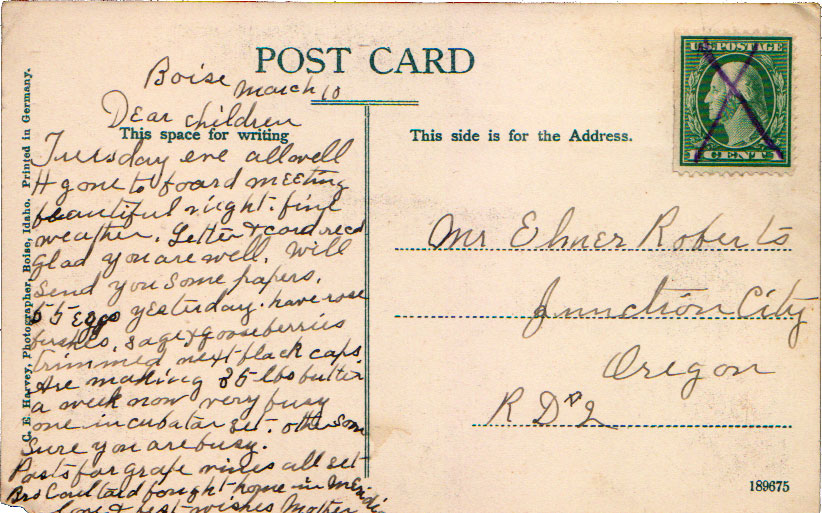 POST CARD
Boise
March 10
Dear children
This space for writing
Tuesday eve all well
H gone to board meeting
beautiful night. fine
weather. Letter & card recd
glad you are well. Will
send you some papers.
55 Eggs yesterday. have rose
bushes, sage & gooseberries
trimmed next black caps.
Are making 35 lbs butter
a week now very busy
one incubator set. other soon
Sure you are busy.
Posts for grape vines all set
Bro Coultard bought home in Meridia
love & best wishes Mother
C. E. Harvey, Photographer, Boise, Idaho. Printed in Germany.
This side is for the Address.
U.S. POSTAGE
1 CENT 1
Mr Elmer Roberts
Junction City
Oregon
R D #2
189675